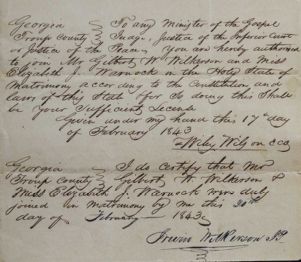 Georgia To any Minister of the Gospel
Troup County Judge, Justice of the Inferior Court
or Justice of the Peace, You are hereby authorised
to join Mr Gilbert W Wilkerson and Miss
Elizabeth J. Warnock in the Holy State of
Matrimony according to the Constitution and
laws of this State & for so doing this Shall
be your Sufficient License
Given under my hand this 17th day
of February 1843
Wiley Wilson cco
Georgia I do Certify that Mr
Troup County Gilbert W. Wilkerson &
Miss Elizabeth J. Warnock were duly
joined in matrimony by me this
day of February 1843
Wilkerson JP